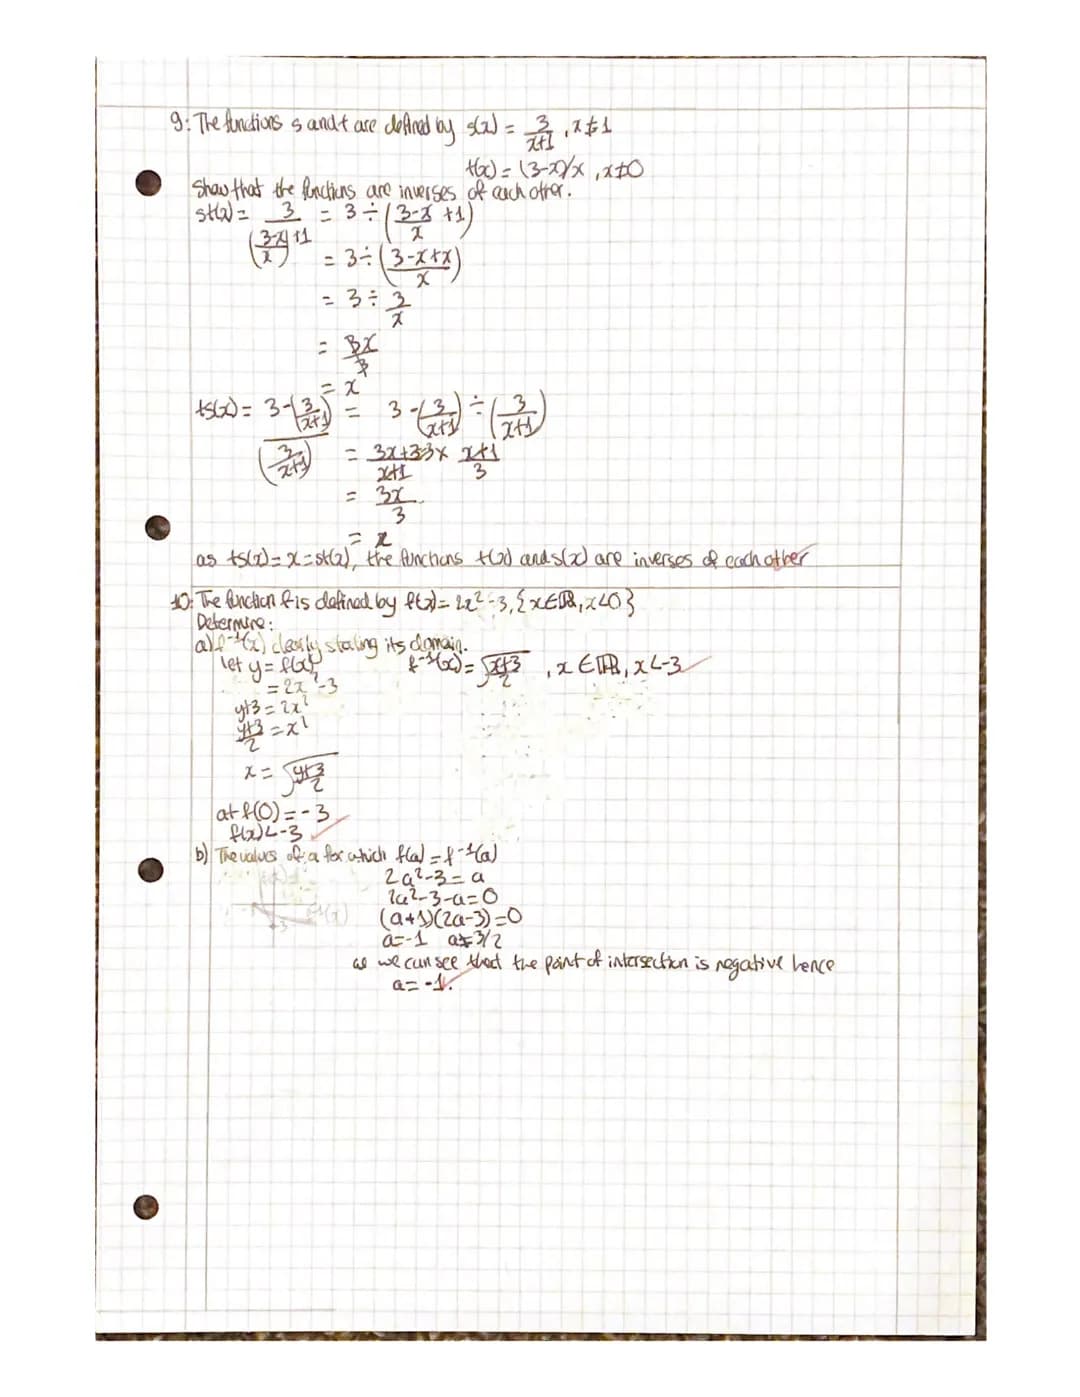 9: The functions s and t are defined by s(x) = 3/(x+1), x≠1
t(x) = (3-x)/x, x≠0
Show that the functions are inverses of each other.
st(x) = 3/((3-x)/x +1) = 3 ÷ ((3-x)/x +1)
= 3 ÷ ((3-x+x)/x)
= 3 ÷ 3/x
= 3x/3
= x
ts(x) = (3-(3/(x+1)))/(3/(x+1)) = 3-(3/(x+1)) ÷ (3/(x+1))
= (3x+3-3)/(x+1) × (x+1)/3
= 3x/3
= x
as ts(x) = x = st(x), the functions t(x) and s(x) are inverses of each other
10: The function f is defined by f(x) = 2x²-3, {x∈ℝ, x<0}
Determine:
a) f⁻¹(x) clearly stating its domain.
let y = f(x) f⁻¹(x) = √((x+3)/2), x∈ℝ, x<-3
= 2x²-3
y+3 = 2x²
(y+3)/2 = x²
x = √((y+3)/2)
at f(0) = -3
f(x)<-3
b) The values of a for which f(a) = f⁻¹(a)
2a²-3 = a
2a²-3-a=0
(a+1)(2a-3)=0
a=-1 a≠3/2
as we can see that the point of intersection is negative hence
a = -1.